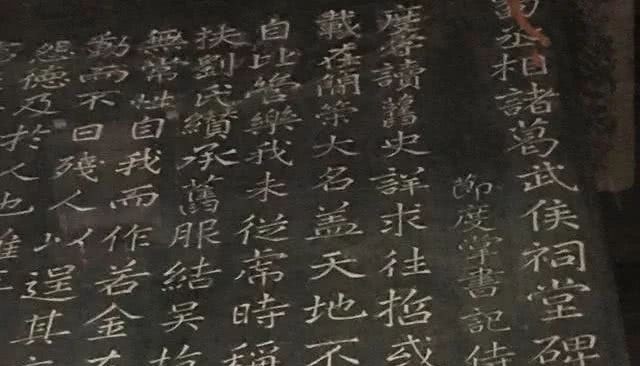 丞相諸葛武侯祠堂碑
節度掌書記侍
度嘗讀舊史詳求往哲或
載在簡策大名蓋天地不
自比管樂我未從虎時稱
扶劉氏纘承舊服結吳
無常性自我而作若金
動而不曰殘人以逞其
怨德及於人也雖